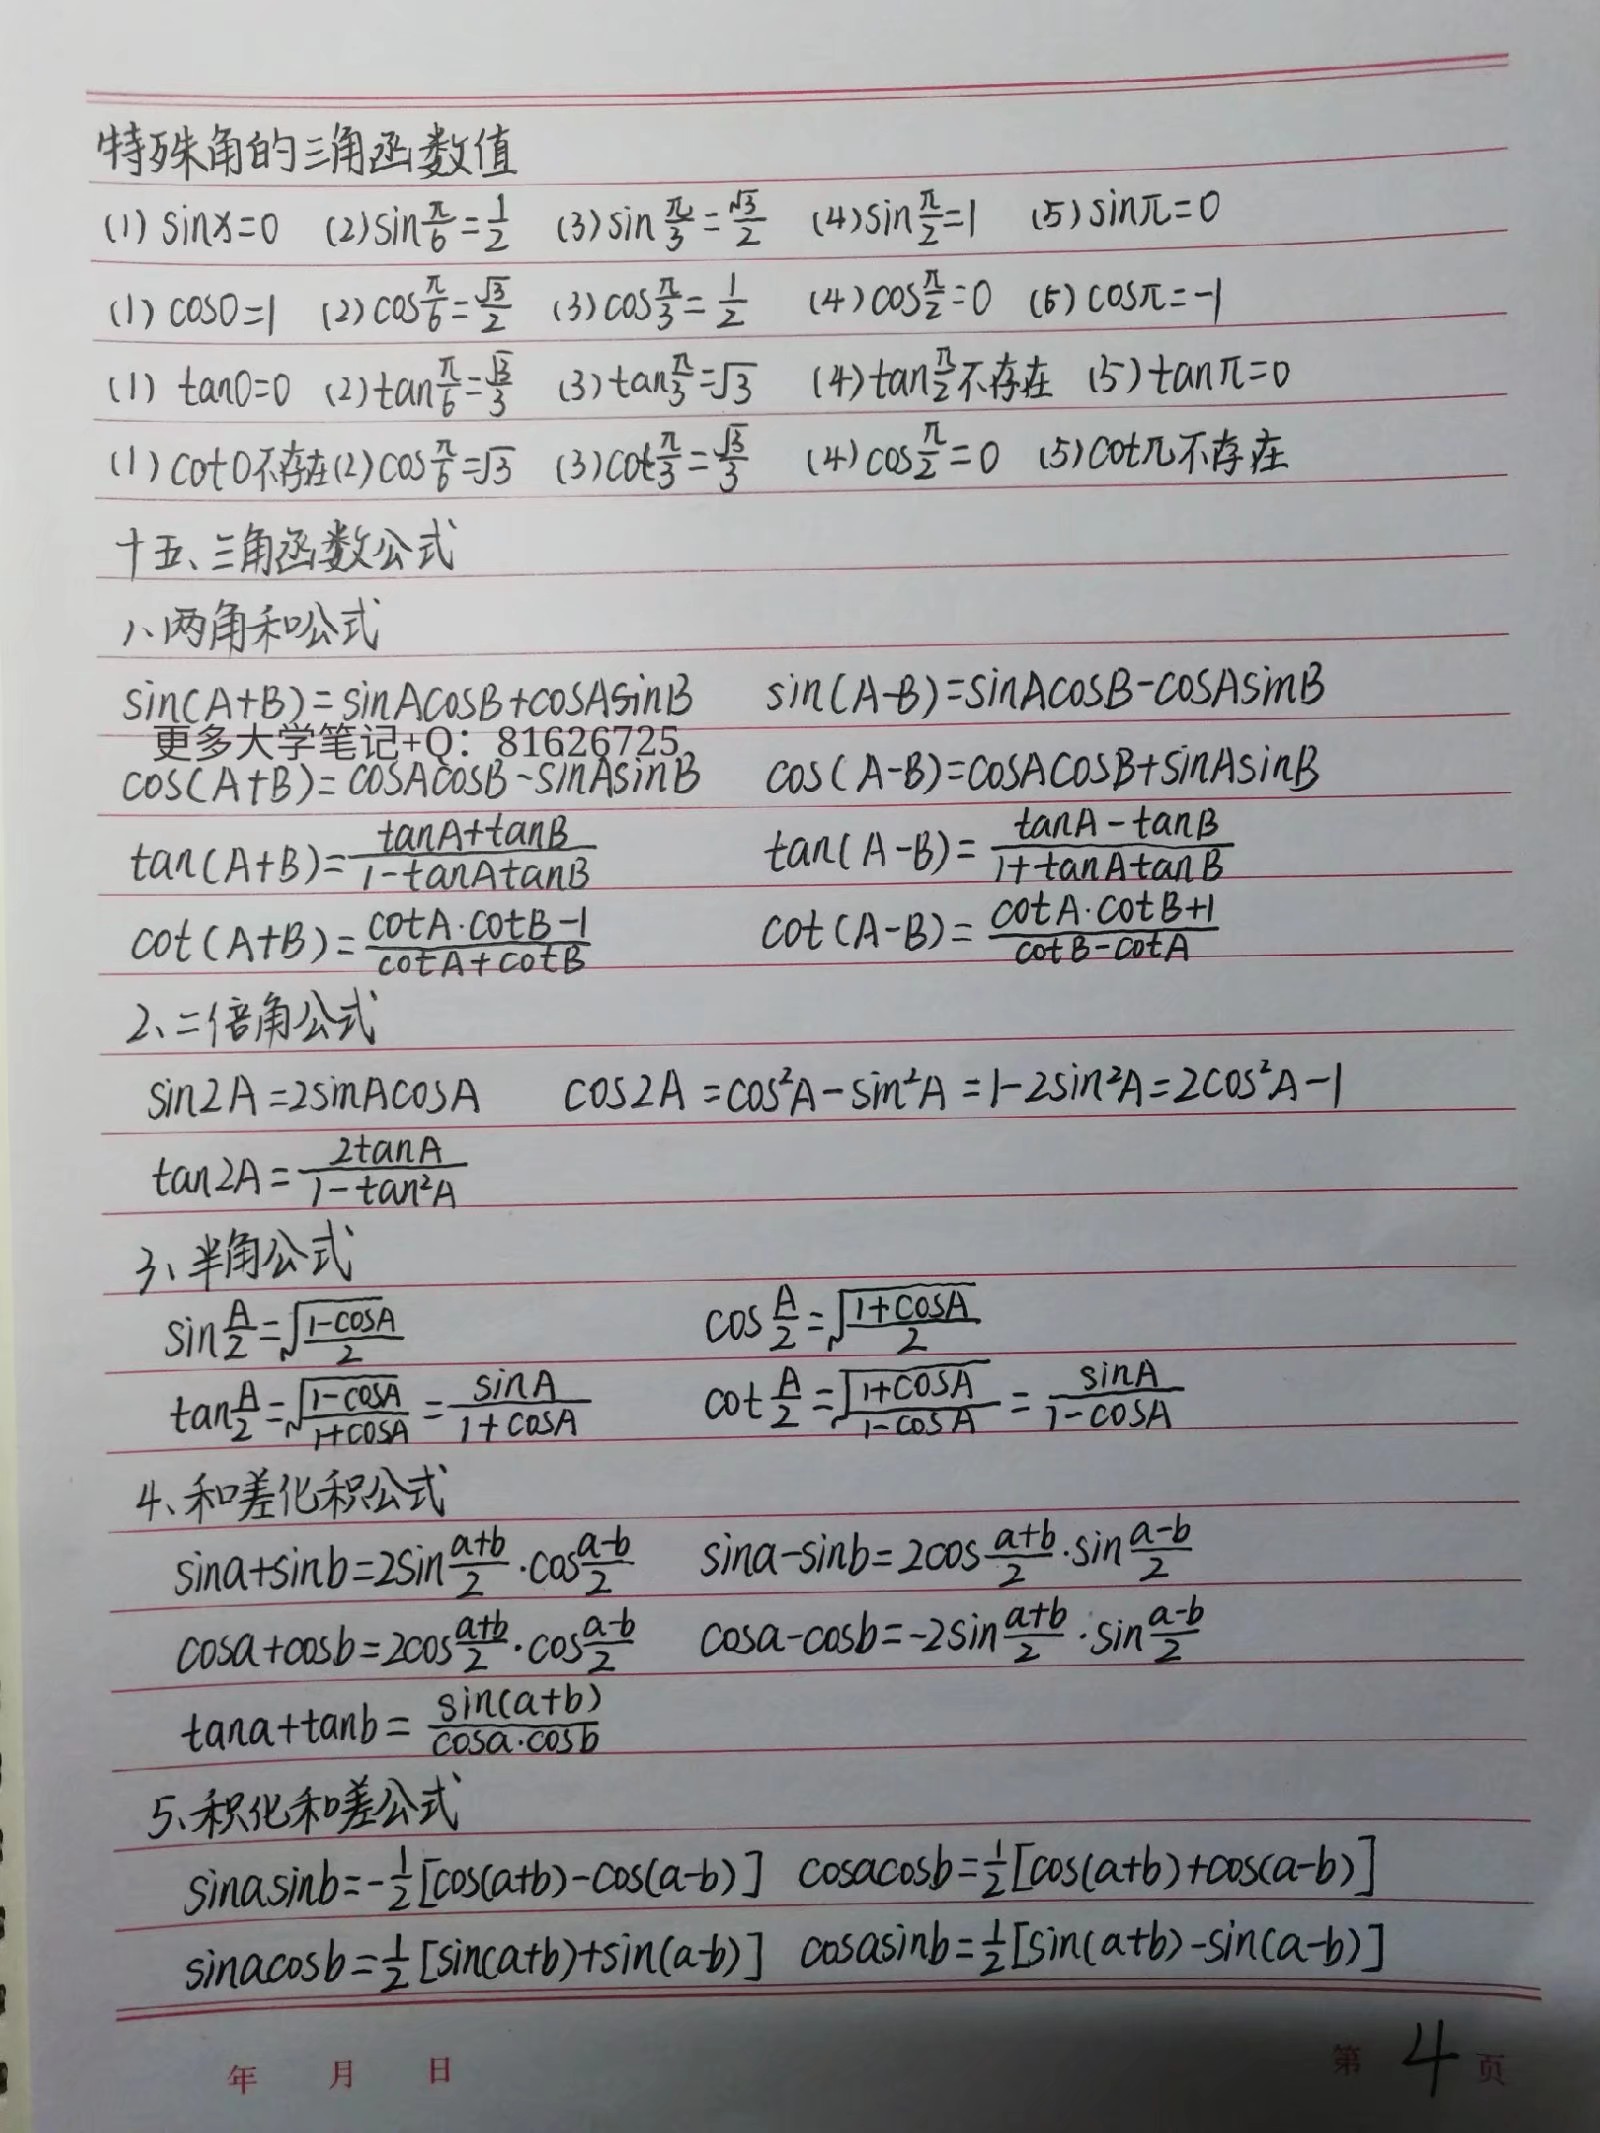 特殊角的三角函数值
(1) sinx=0 (2)sin π/6=1/2 (3)sin π/3=√3/2 (4)sin π/2=1 (5)sinπ=0
(1) cos0=1 (2)cos π/6=√3/2 (3)cos π/3=1/2 (4)cos π/2=0 (5)cosπ=-1
(1) tan0=0 (2)tan π/6=√3/3 (3)tan π/3=√3 (4)tan π/2不存在 (5)tanπ=0
(1)cot0不存在(2)cos π/6=√3 (3)cot π/3=√3/3 (4)cos π/2=0 (5)cotπ不存在
十五、三角函数公式
1、两角和公式
sin(A+B)=sinAcosB+cosAsinB sin(A-B)=sinAcosB-cosAsinB
更多大学笔记+Q：81626725
cos(A+B)=cosAcosB-sinAsinB cos(A-B)=cosAcosB+sinAsinB
tan(A+B)=(tanA+tanB)/(1-tanAtanB) tan(A-B)=(tanA-tanB)/(1+tanAtanB)
cot(A+B)=(cotA·cotB-1)/(cotA+cotB) cot(A-B)=(cotA·cotB+1)/(cotB-cotA)
2、二倍角公式
sin2A=2sinAcosA cos2A=cos²A-sin²A=1-2sin²A=2cos²A-1
tan2A=2tanA/(1-tan²A)
3、半角公式
sin A/2=√((1-cosA)/2) cos A/2=√((1+cosA)/2)
tan A/2=√((1-cosA)/(1+cosA))=sinA/(1+cosA) cot A/2=√((1+cosA)/(1-cosA))=sinA/(1-cosA)
4、和差化积公式
sina+sinb=2sin (a+b)/2·cos (a-b)/2 sina-sinb=2cos (a+b)/2·sin (a-b)/2
cosa+cosb=2cos (a+b)/2·cos (a-b)/2 cosa-cosb=-2sin (a+b)/2·sin (a-b)/2
tana+tanb=sin(a+b)/(cosa·cosb)
5、积化和差公式
sinasinb=-1/2[cos(a+b)-cos(a-b)] cosacosb=1/2[cos(a+b)+cos(a-b)]
sinacosb=1/2[sin(a+b)+sin(a-b)] cosasinb=1/2[sin(a+b)-sin(a-b)]
年 月 日 第 4 页